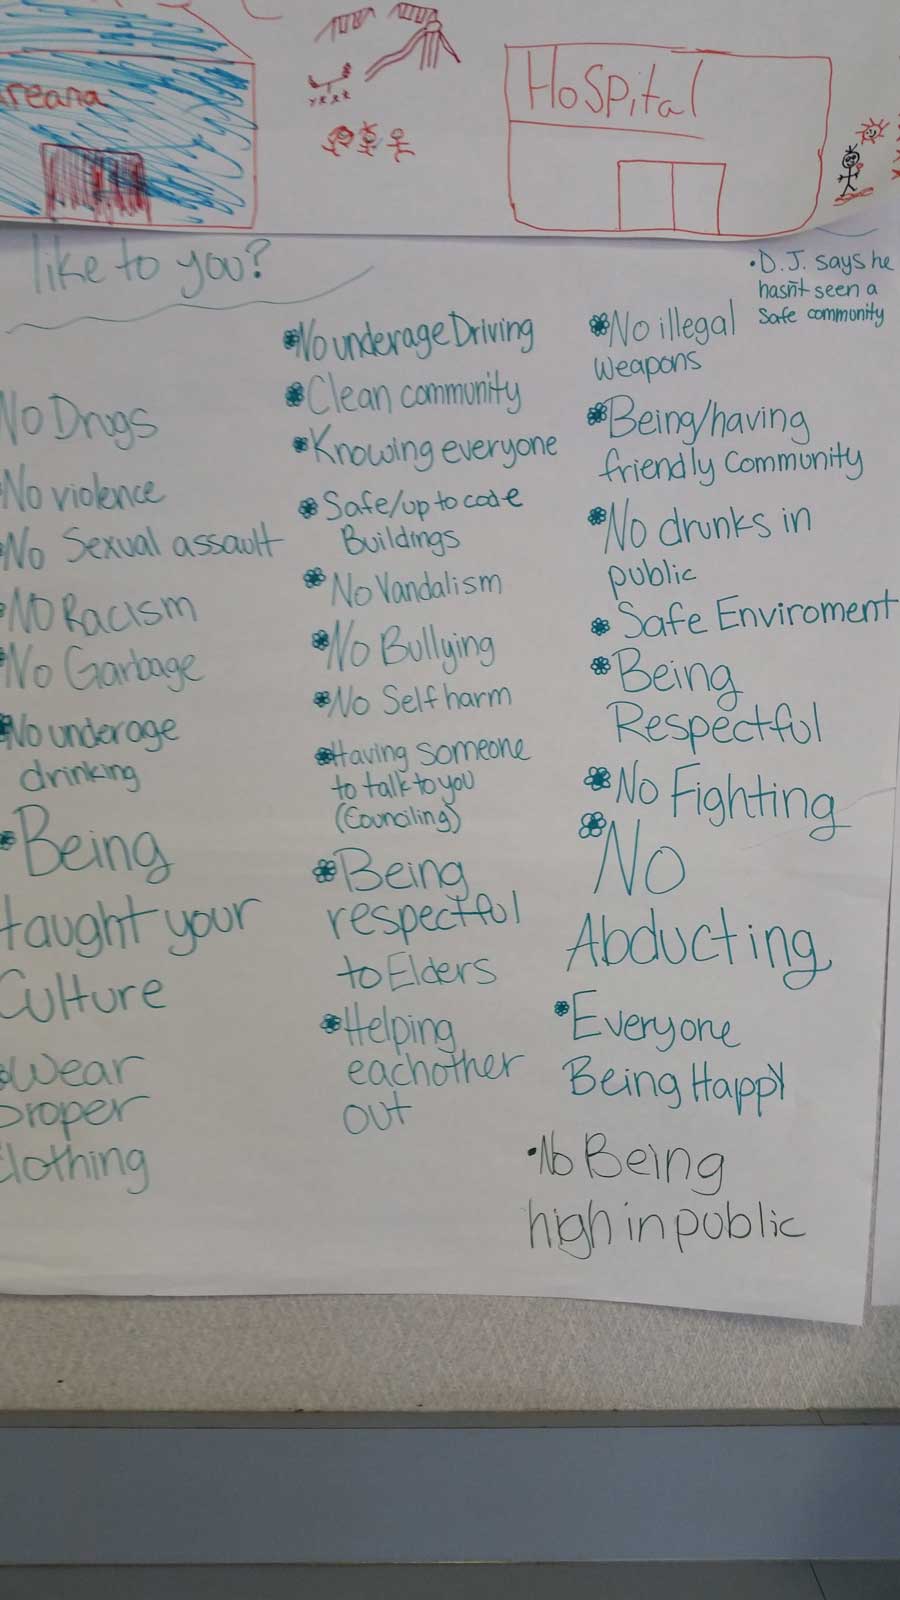 areana
Hospital
like to you?
No Drugs
No violence
No Sexual assault
No Racism
No Garbage
No underage
drinking
Being
taught your
Culture
Wear
proper
Clothing
No underage Driving
Clean community
Knowing everyone
Safe/up to code
Buildings
No Vandalism
No Bullying
No Self harm
Having someone
to talk to you
(Counciling)
Being
respectful
to Elders
Helping
eachother
out
• D.J. says he
hasn't seen a
Safe community
No illegal
weapons
Being/having
friendly Community
No drunks in
public
Safe Enviroment
Being
Respectful
No Fighting
No
Abducting
Everyone
Being Happy
• No Being
high in public